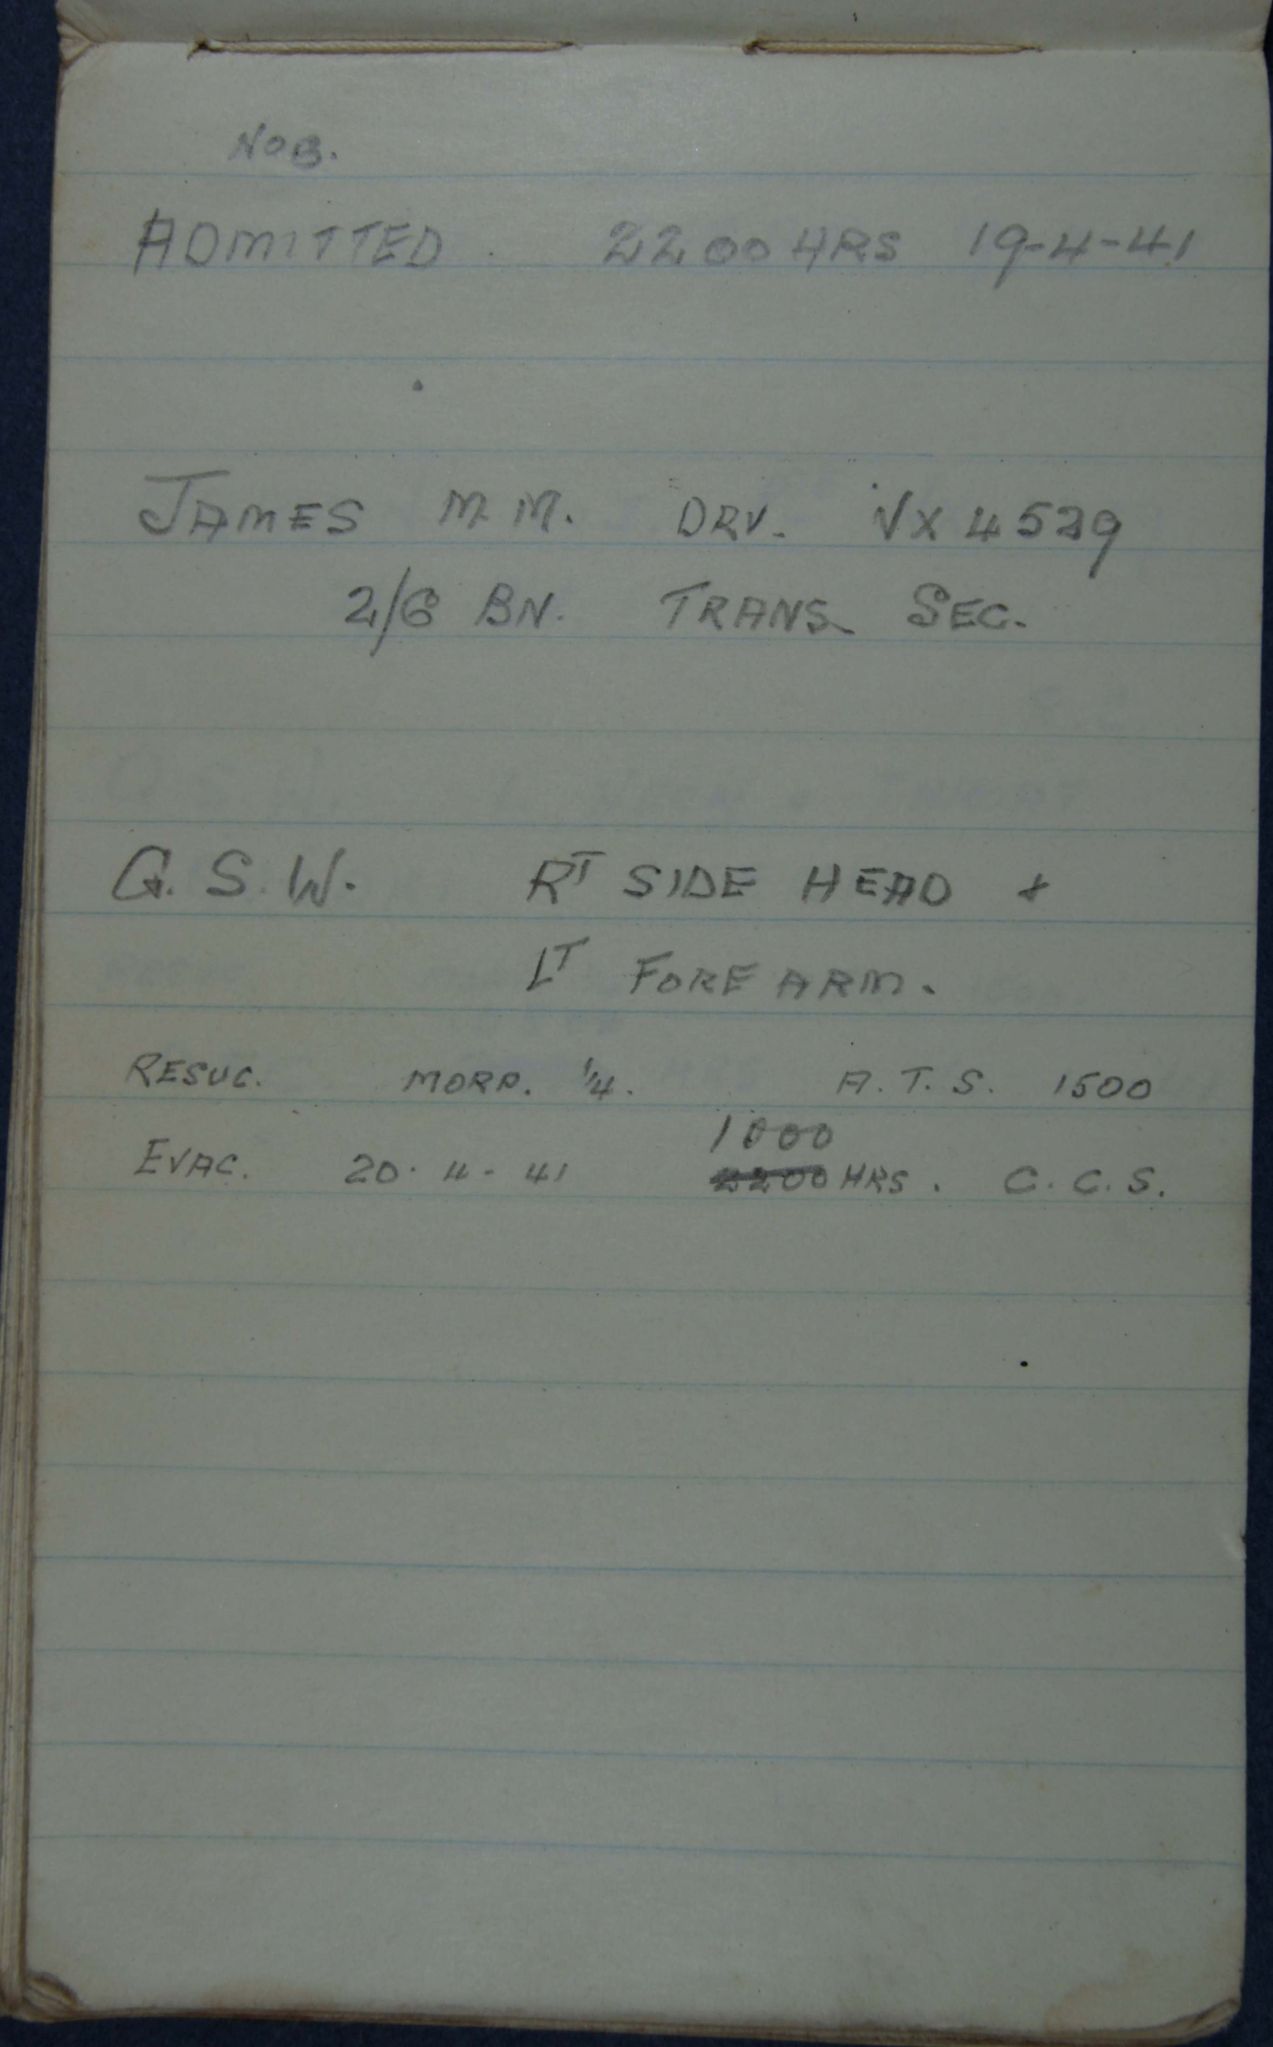 NOB.
ADMITTED 2200 HRS 19-4-41
JAMES M.M. DRV. VX4529
2/6 BN. TRANS. SEC.
G.S.W. RT SIDE HEAD +
LT FOREARM.
RESUC. MORP. 1/4. A.T.S. 1500
1000
EVAC. 20.4.41 2200 HRS. C.C.S.